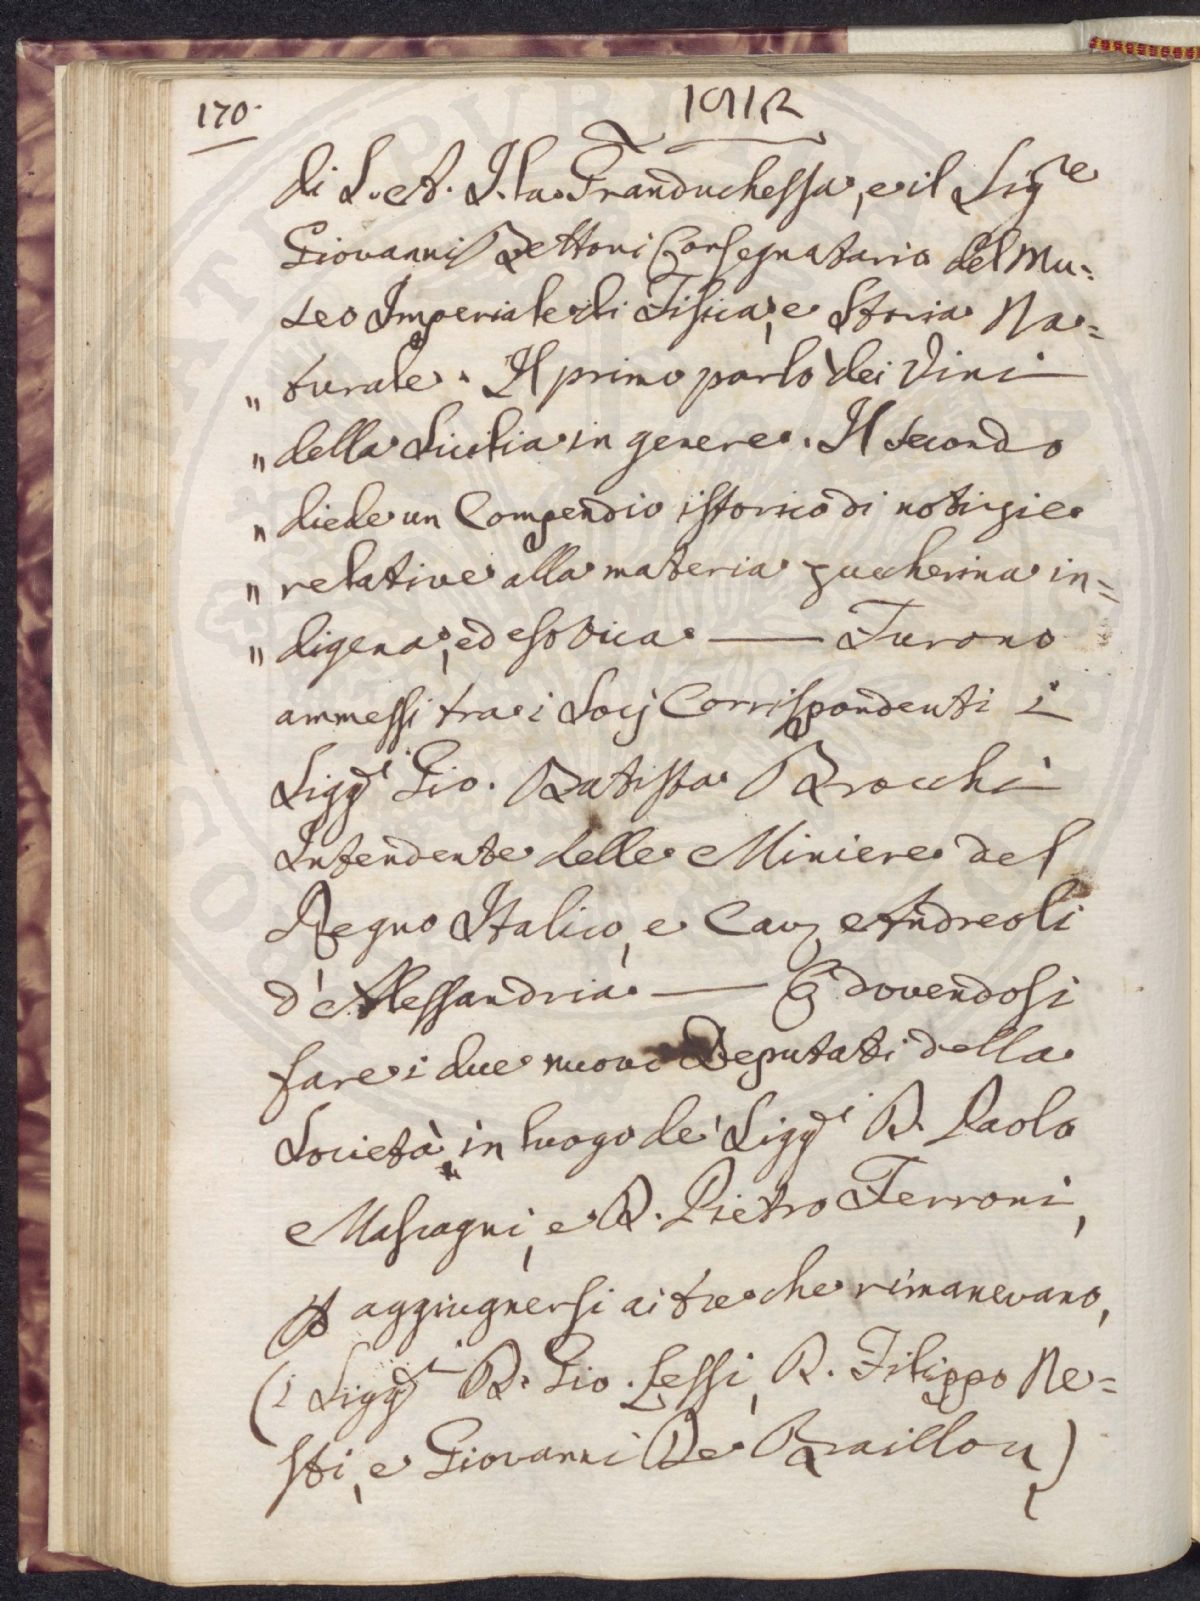 170.
1812
di S. A. I. la Granduchessa, e il Sig.re
Giovanni Bettoni Consegnatario del Mu=
seo Imperiale di Fisica, e Storia Na=
„ turale. Il primo parlò dei Vini
„ della Sicilia in genere. Il secondo
„ diede un Compendio istorico di notizie
„ relative alla materia zuccherina in=
„ digena, ed esotica — Furono
ammessi tra i Socj Corrispondenti i
Sigg.i Gio. Batista Brocchi
Intendente delle Miniere del
Regno Italico, e Cav. Andreoli
d'Alessandria — E dovendosi
fare i due nuovi Deputati della
Società, in luogo de' Sigg.i D. Paolo
Mascagni, e D. Pietro Ferroni,
aggiugnersi ai tre che rimanevano,
(i Sigg.i D. Gio. Lessi, D. Filippo Ne=
sti, e Giovanni De Baillou)